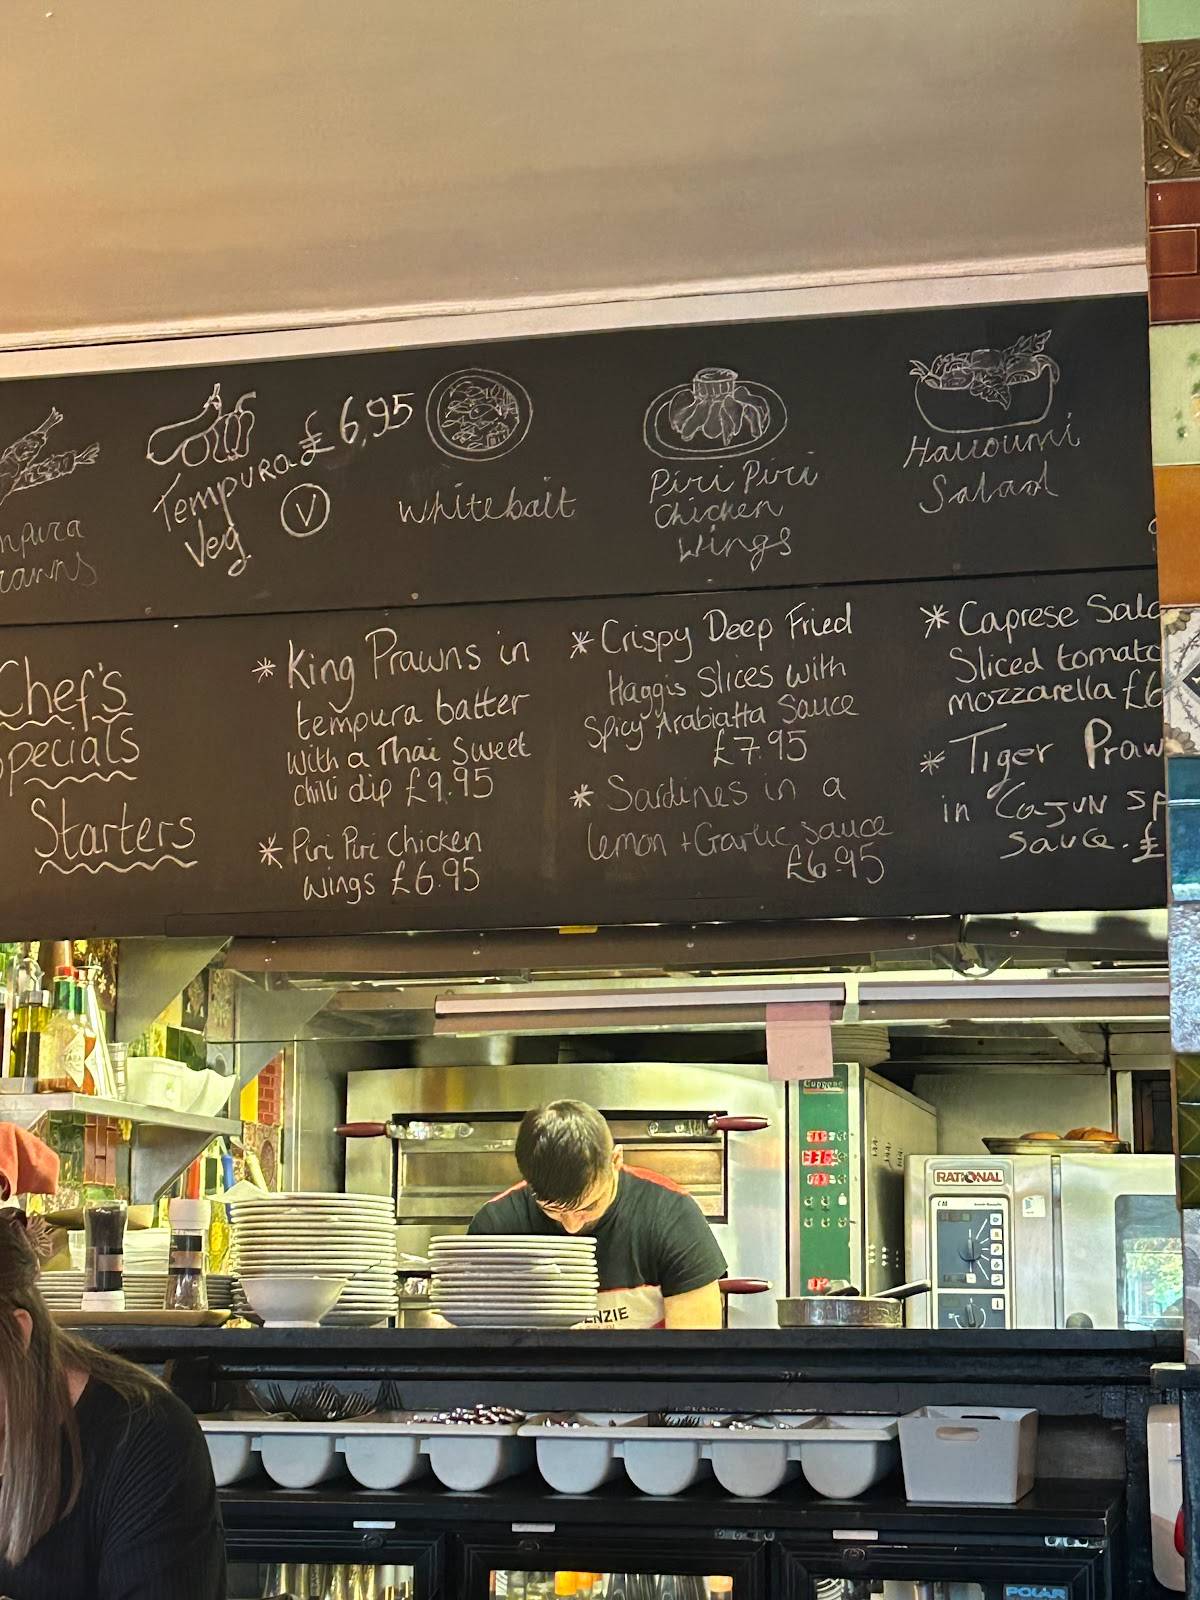 Tempura £6.95
Veg V
Whitebait
Piri Piri
Chicken
Wings
Halloumi
Salad
Chef's
Specials
Starters
* King Prawns in
tempura batter
with a Thai Sweet
chilli dip £9.95
* Piri Piri Chicken
wings £6.95
* Crispy Deep Fried
Haggis Slices with
Spicy Arabiatta Sauce
£7.95
* Sardines in a
lemon + Garlic sauce
£6.95
* Caprese Sala
Sliced tomato
mozzarella £6
* Tiger Praw
in Cajun SP
Sauce. £
RATIONAL
ENZIE
POLAR